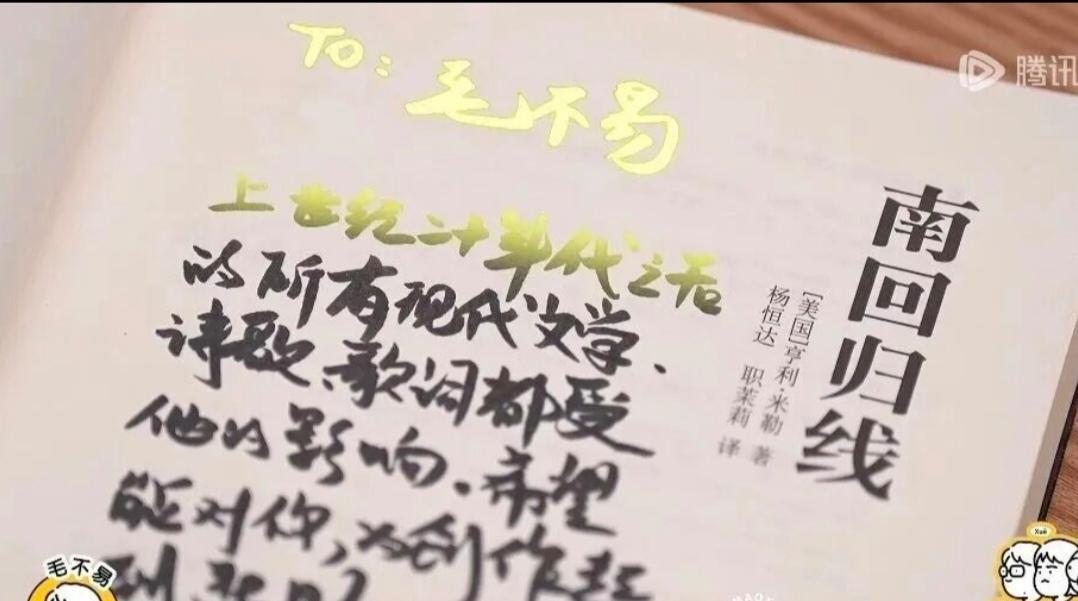 TO: 毛不易
上世纪二十年代之后
的所有现代文学、
诗歌、歌词都受
他的影响.希望
能对你,为创作起
到
南回归线
[美国]亨利·米勒 著
杨恒达 职茉莉 译
腾讯
毛不易
Xuě